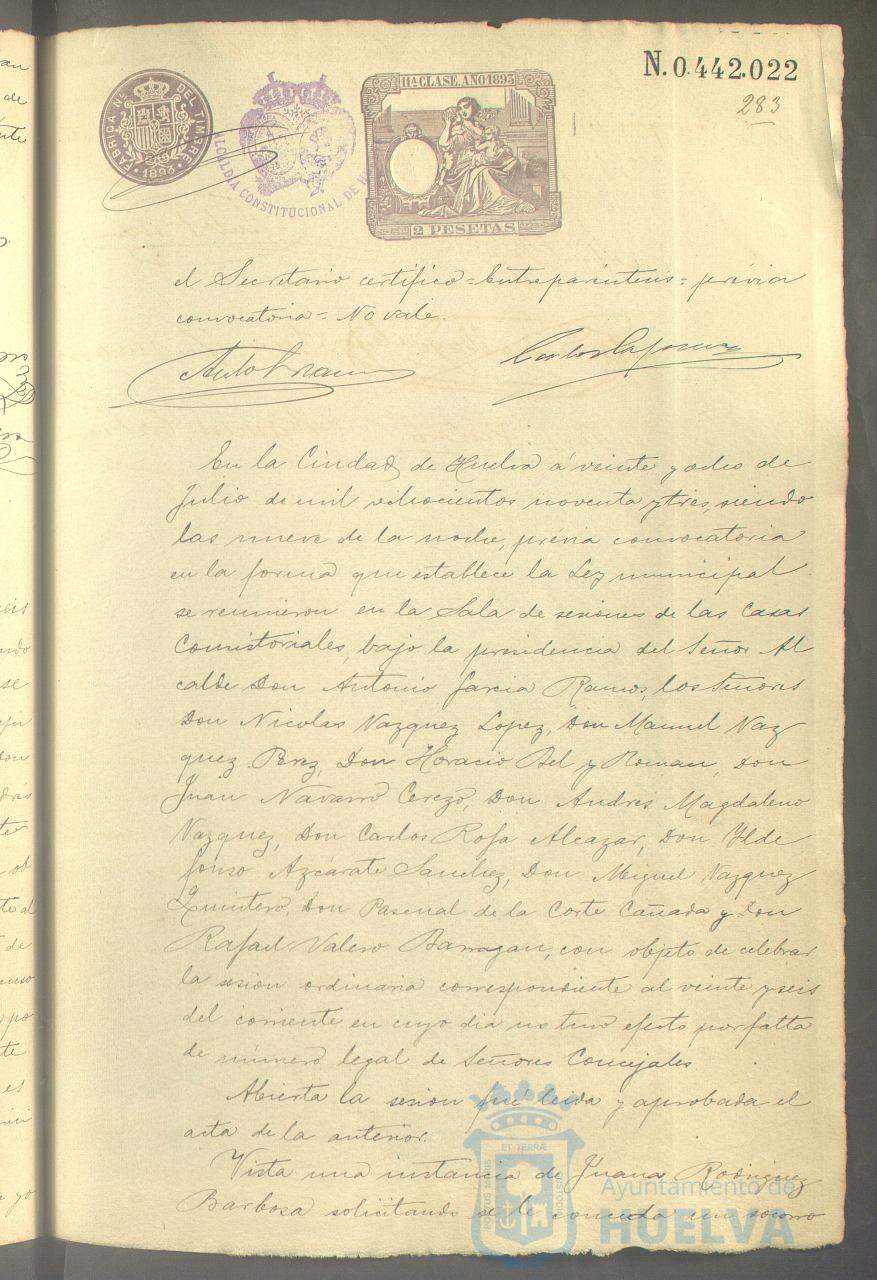 FABRICA Nal. DEL TIMBRE
1893
ALCALDIA CONSTITUCIONAL DE H
11ª CLASE. AÑO 1893
2 PESETAS
N.0.442.022
283
el Secretario certifico = Entreparéntesis = prévia
convocatoria = No vale.
En la Ciudad de Huelva á veinte y ocho de
Julio de mil ochocientos noventa y tres, siendo
las nueve de la noche, prévia convocatoria
en la forma que establece la Ley municipal
se reunieron en la Sala de sesiones de las Casas
Consistoriales, bajo la presidencia del Señor Al
calde Don Antonio Garcia Ramos, los Señores
Don Nicolas Vazquez Lopez, Don Manuel Vaz
quez Perez, Don Horacio Bel y Roman, Don
Juan Navarro Cerezo, Don Andres Magdaleno
Vazquez, Don Carlos Rofa Alcazar, Don Ylde
fonso Azcárate Sanchez, Don Miguel Vazquez
Quintero, Don Pascual de la Corte Cañada y Don
Rafael Valero Barragan, con objeto de celebrar
la sesion ordinaria correspondiente al veinte y seis
del corriente en cuyo dia no tuvo efecto por falta
de número legal de Señores Concejales.
Abierta la sesion fué leida y aprobada el
acta de la anterior.
Vista una instancia de Juana Rodriguez
Barbosa solicitando se le conceda un socorro
Ayuntamiento de
HUELVA